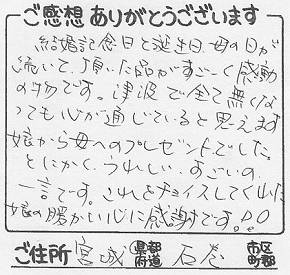 ご感想 ありがとうございます
結婚記念日と誕生日、母の日が
続いて、頂いた品がすごーく感動
の物です。津波で全て無くな
っても心が通じていると思えます
娘から母へのプレゼントでした。
とにかく、うれしい、すごいの
一言です。これをチョイスしてくれた
娘の暖かい心に感謝です。
ご住所 宮城 都道府県 石巻 市区町郡